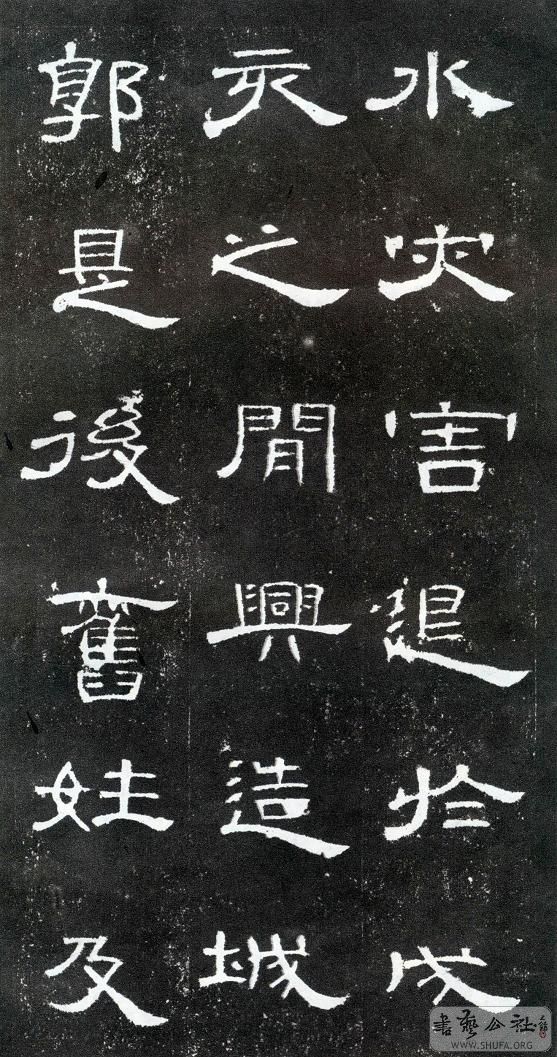 水灾害退於戌
亥之閒興造城
郭是後舊姓及
書藝公社
WWW.SHUFA.ORG